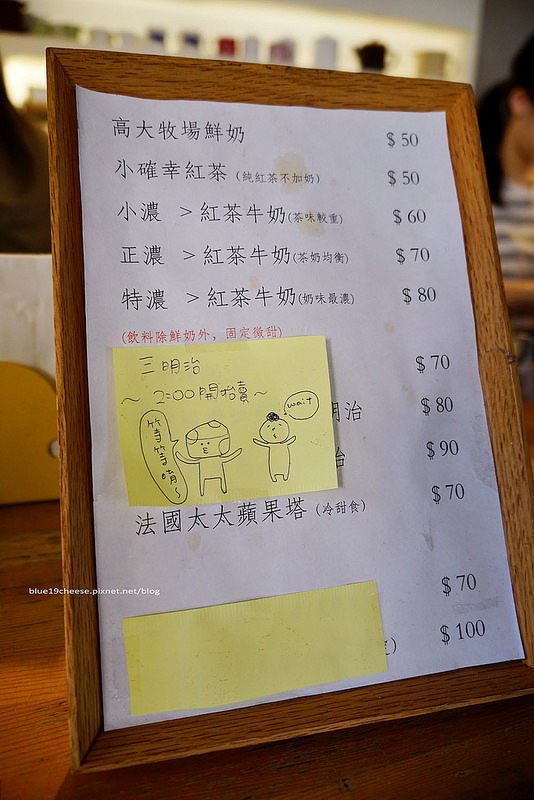 高大牧場鮮奶 $50
小確幸紅茶 (純紅茶不加奶) $50
小濃 > 紅茶牛奶(茶味較重) $60
正濃 > 紅茶牛奶(茶奶均衡) $70
特濃 > 紅茶牛奶(奶味最濃) $80
(飲料除鮮奶外, 固定微甜)
三明治
～ 2:00開始賣～
wait
等等唷～
$70
明治 $80
治 $90
法國太太蘋果塔 (冷甜食) $70
$70
) $100
blue19cheese.pixnet.net/blog